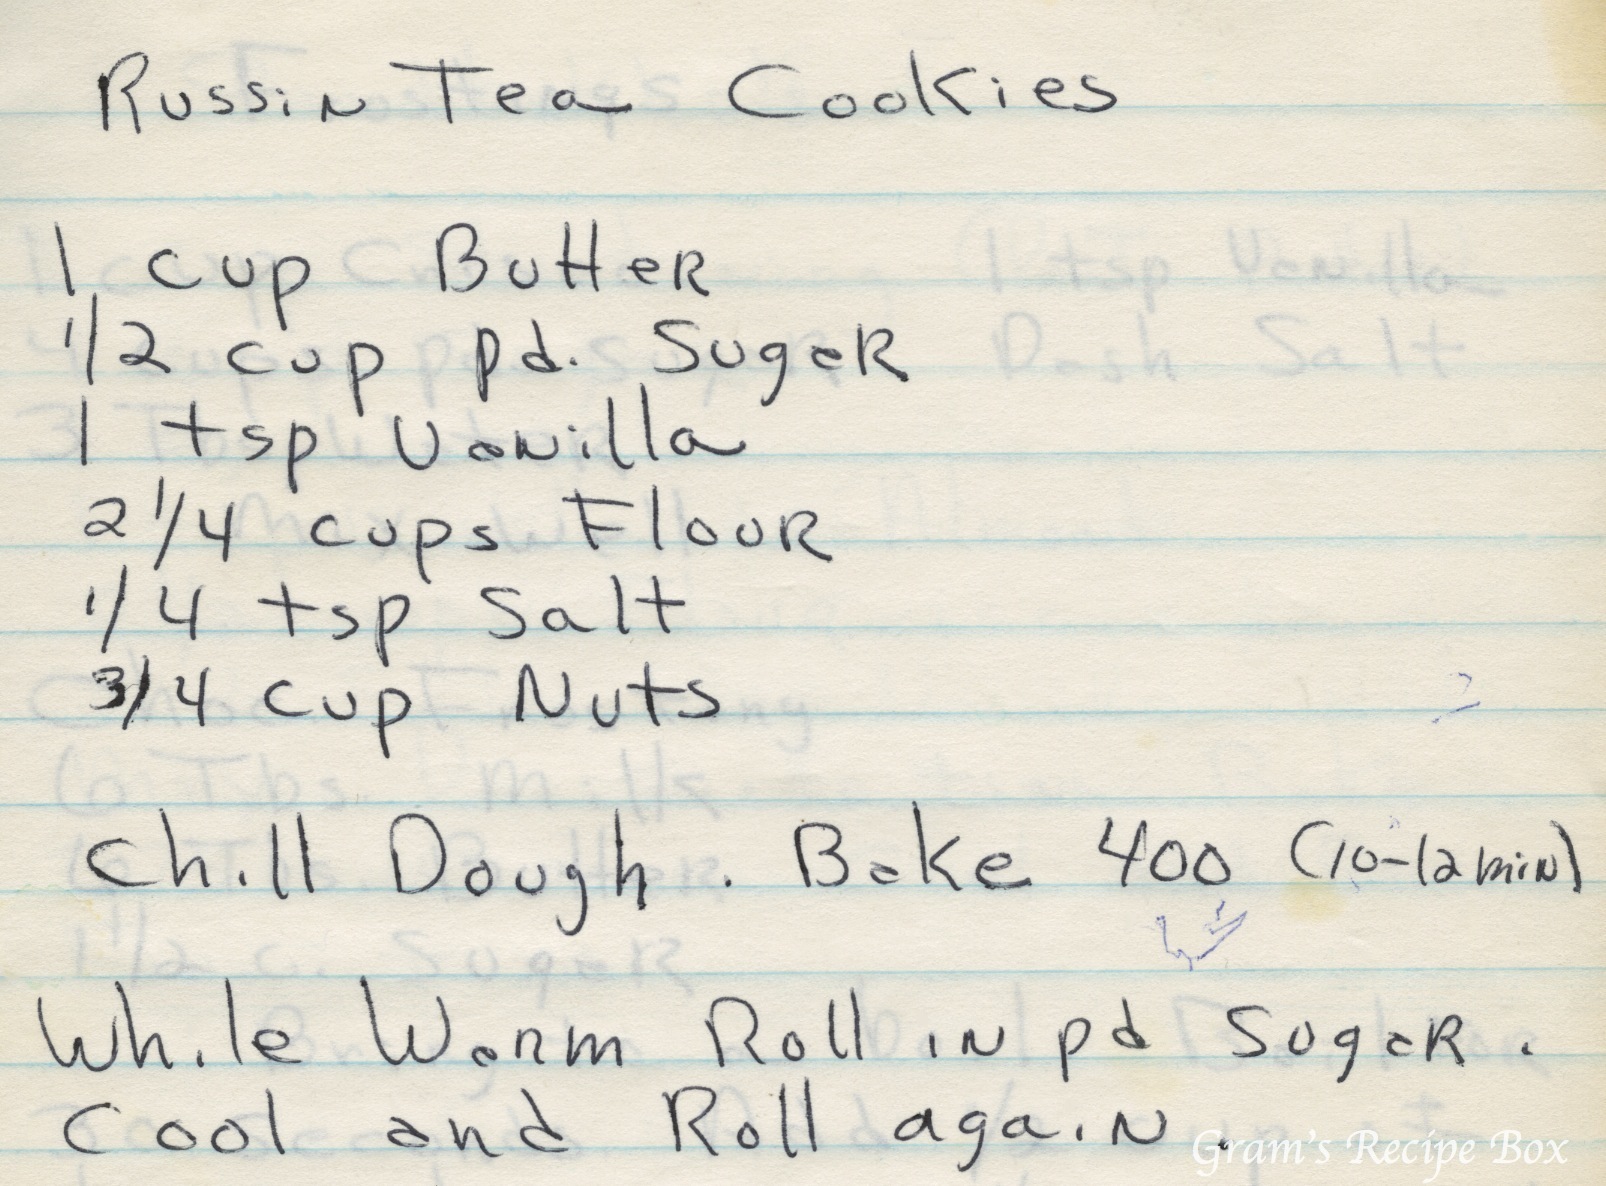 Russin Tea Cookies
1 cup Butter
1/2 cup pd. Sugar
1 tsp Vanilla
2 1/4 cups Flour
1/4 tsp Salt
3/4 cup Nuts
Chill Dough. Bake 400 (10-12 min)
While Warm Roll in pd Sugar.
Cool and Roll again.
Gram's Recipe Box